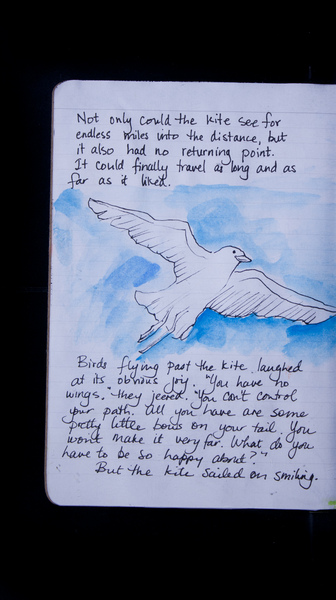 Not only could the kite see for
endless miles into the distance, but
it also had no returning point.
It could finally travel as long and as
far as it liked.
Birds flying past the kite laughed
at its obvious joy. "You have no
wings," they jeered. "You can't control
your path. All you have are some
pretty little bows on your tail. You
won't make it very far. What do you
have to be so happy about?"
But the kite sailed on smiling.